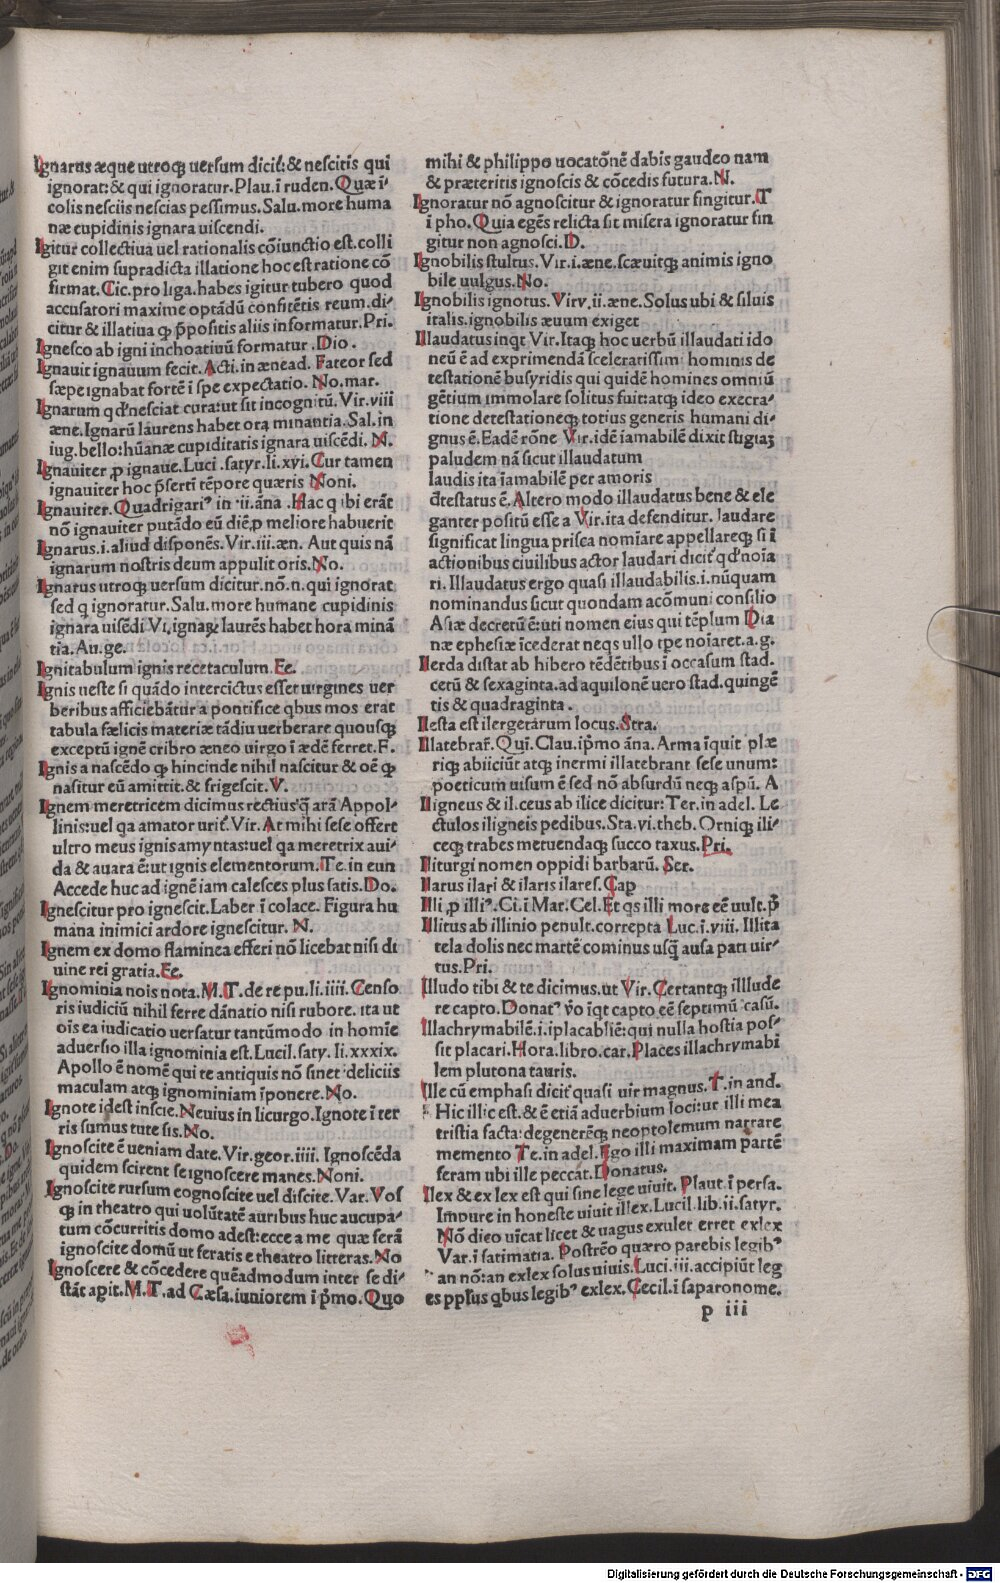 Ignarus æque utroq; uersum dicit̃: & nescitis qui
ignorat: & qui ignoratur. Plau. ĩ ruden. Quæ ĩ-
colis nesciis nescias pessimus. Salu. more huma
næ cupidinis ignara uiscendi.
Igitur collectiua uel rationalis cõiunctio est. colli
git enim supradicta illatione hoc est ratione cõ
firmat. Cic. pro liga. habes igitur tubero quod
accusatori maxime optãdũ confitẽtis reum. di-
citur & illatiua ꝙ p̃positis aliis informatur. Pri.
Ignesco ab igni inchoatiuũ formatur. Dio.
Ignauit ignauum fecit. Acti. in ænead. Fateor sed
sæpe ignabat fortẽ ĩ spe expectatio. No. mar.
Ignarum q d' nesciat cura: ut sit incognitũ. Vir. viii
æne. Ignarũ laurens habet ora minantia. Sal. in
iug. bello: hũanæ cupiditatis ignara uiscẽdi. N.
Ignauiter ꝓ ignaue. Luci. satyr. li. xvi. Cur tamen
ignauiter hoc p̃serti tẽpore quæris Noni.
Ignauiter. Quadrigariꝰ in ·ii. ãna. Hac q ibi erãt
nõ ignauiter putãdo eũ diẽ, ꝓ meliore habuerit
Ignarus .i. aliud disponẽs. Vir. iii. æn. Aut quis nã
ignarum nostris deum appulit oris. No.
Ignarus utroq; uersum dicitur. nõ. n. qui ignorat
sed q ignoratur. Salu. more humane cupidinis
ignara uisẽdi Vi. ignaꝝ laurẽs habet hora minã
tia. Au. ge.
Ignitabulum ignis recetaculum. Fe.
Ignis ueste si quãdo intercictus esset uirgines uer
beribus afficiebãtur a pontifice qbus mos erat
tabula fælicis materiæ tãdiu uerberare quousq;
exceptũ ignẽ cribro æneo uirgo ĩ ædẽ ferret. F.
Ignis a nascẽdo ꝙ hincinde nihil nascitur & oẽ ꝙ
nasitur eũ amittit. & frigescit. V.
Ignem meretricem dicimus rectius q̃ arã Appol-
linis: uel qa amator urit̃. Vir. At mihi sese offert
ultro meus ignis amyntas: uel qa meretrix aui-
da & auara ẽ: ut ignis elementorum. Te. in eun
Accede huc ad ignẽ iam calesces plus satis. Do.
Ignescitur pro ignescit. Laber ĩ colace. Figura hu
mana inimici ardore ignescitur. N.
Ignem ex domo flaminea efferi nõ licebat nisi di
uine rei gratia. Fe.
Ignominia nois nota. M. T. de re pu. li. iiii. Censo
ris iudiciũ nihil ferre dãnatio nisi rubore. ita ut
ois ea iudicatio uersatur tantũmodo in homie
aduersio illa ignominia est. Lucil. saty. li. xxxix.
Apollo ẽ nomẽ qui te antiquis nõ sinet deliciis
maculam atq; ignominiam ĩponere. No.
Ignote idest inscie. Neuius in licurgo. Ignote ĩ ter
ris sumus tute sis. No.
Ignoscite ẽ ueniam date. Vir. geor. iiii. Ignoscẽda
quidem scirent se ignoscere manes. Noni.
Ignoscite rursum cognoscite uel discite. Var. Vos
q; in theatro qui uolũtatẽ auribus huc aucupa-
tum cõcurritis domo adest: ecce a me quæ ferã
ignoscite domũ ut feratis e theatro litteras. No
Ignoscere & cõcedere quẽadmodum inter se di-
stãt apit. M. T. ad Cæsa. iuniorem ĩ p̃mo. Quo
mihi & philippo uocatõnẽ dabis gaudeo nam
& præteritis ignoscis & cõcedis futura. N.
Ignoratur nõ agnoscitur & ignoratur fingitur. T
ĩ pho. Quia egẽs relicta sit misera ignoratur fin
gitur non agnosci. D.
Ignobilis stultus. Vir. i. æne. scæuitq; animis igno
bile uulgus. No.
Ignobilis ignotus. Virv. ii. æne. Solus ubi & siluis
italis. ignobilis æuum exiget
Illaudatus inqt Vir. Itaq; hoc uerbũ illaudati ido
neũ ẽ ad exprimendã sceleratissimi hominis de
testationẽ busyridis qui quidẽ homines omniũ
gẽtium immolare solitus fuit: atq; ideo execra-
tione detestationeq; totius generis humani di-
gnus ẽ. Eadẽ rõne Vir. idẽ iamabilẽ dixit stigiaȝ
paludem nã sicut illaudatum
laudis ita iamabilẽ per amoris
d̃testatus ẽ. Altero modo illaudatus bene & ele
ganter positũ esse a Vir. ita defenditur. laudare
significat lingua prisca nomiare appellareq; si ĩ
actionibus ciuilibus actor laudari dicit̃ q d' noia
ri. Illaudatus ergo quasi illaudabilis .i. nũquam
nominandus sicut quondam acõmuni consilio
Asiæ decretũ ẽ: uti nomen eius qui tẽplum Dia
næ ephesiæ ĩcederat neqs ullo tp̃e noiaret. a. g.
Ilerda distat ab hibero tẽdẽtibus ĩ occasum stad.
cetũ & sexaginta. ad aquilonẽ uero stad. quingẽ
tis & quadraginta.
Ilesta est ilergetarum locus. Stra.
Illatebrat̃. Quĩ. Clau. ip̃mo ãna. Arma ĩquit plæ
riq; abiiciũt atq; inermi illatebrant sese unum:
poeticum uisum ẽ sed nõ absurdũ neq; aspũ. A
Iligneus & il. ceus ab ilice dicitur: Ter. in adel. Le
ctulos iligneis pedibus. Sta. vi. theb. Orniq; ili-
ceq; trabes metuendaq; succo taxus. Pri.
Iliturgi nomen oppidi barbarũ. Ser.
Ilarus ilari & ilaris ilares. Cap
Illi ꝓ illiꝰ. Ci. ĩ Mar. Cel. Et qs illi more eẽ uult. p̃
Illitus ab illinio penult. correpta Luc. ĩ. viii. Illita
tela dolis nec martẽ cominus usq̃ ausa pati uir-
tus. Pri.
Illudo tibi & te dicimus. ut Vir. Certantq; illlude
re capto. Donatꝰ v̾o ĩqt capto eẽ septimũ casũ.
Illachrymabilẽ .i. iplacabliẽ: qui nulla hostia pos-
sit placari. Hora. libro. car. Places illachrymabi
lem plutona tauris.
Ille cũ emphasi dicit̃ quasi uir magnus. T. in and.
Hic ille est. & ẽ etiã aduerbium loci: ut illi mea
tristia facta: degenerẽq; neoptolemum narrare
memento Te. in adel. Ego illi maximam partẽ
feram ubi ille peccãt. Donatus.
Ilex & ex lex est qui sine lege uiuit. Plaut. ĩ persa.
Impure in honeste uiuit illex. Lucil. lib. ii. satyr.
Nõ dico uĩcat licet & uagus exulet erret exlex
Var. ĩ satimatia. Postrẽo quæro parebis legibꝰ
an nõ: an exlex solus uiuis. Luci. iii. accipiũt leg
es pplus qbus legibꝰ exlex. Cecil. ĩ saparonome.
p iii
Digitalisierung gefördert durch die Deutsche Forschungsgemeinschaft - DFG